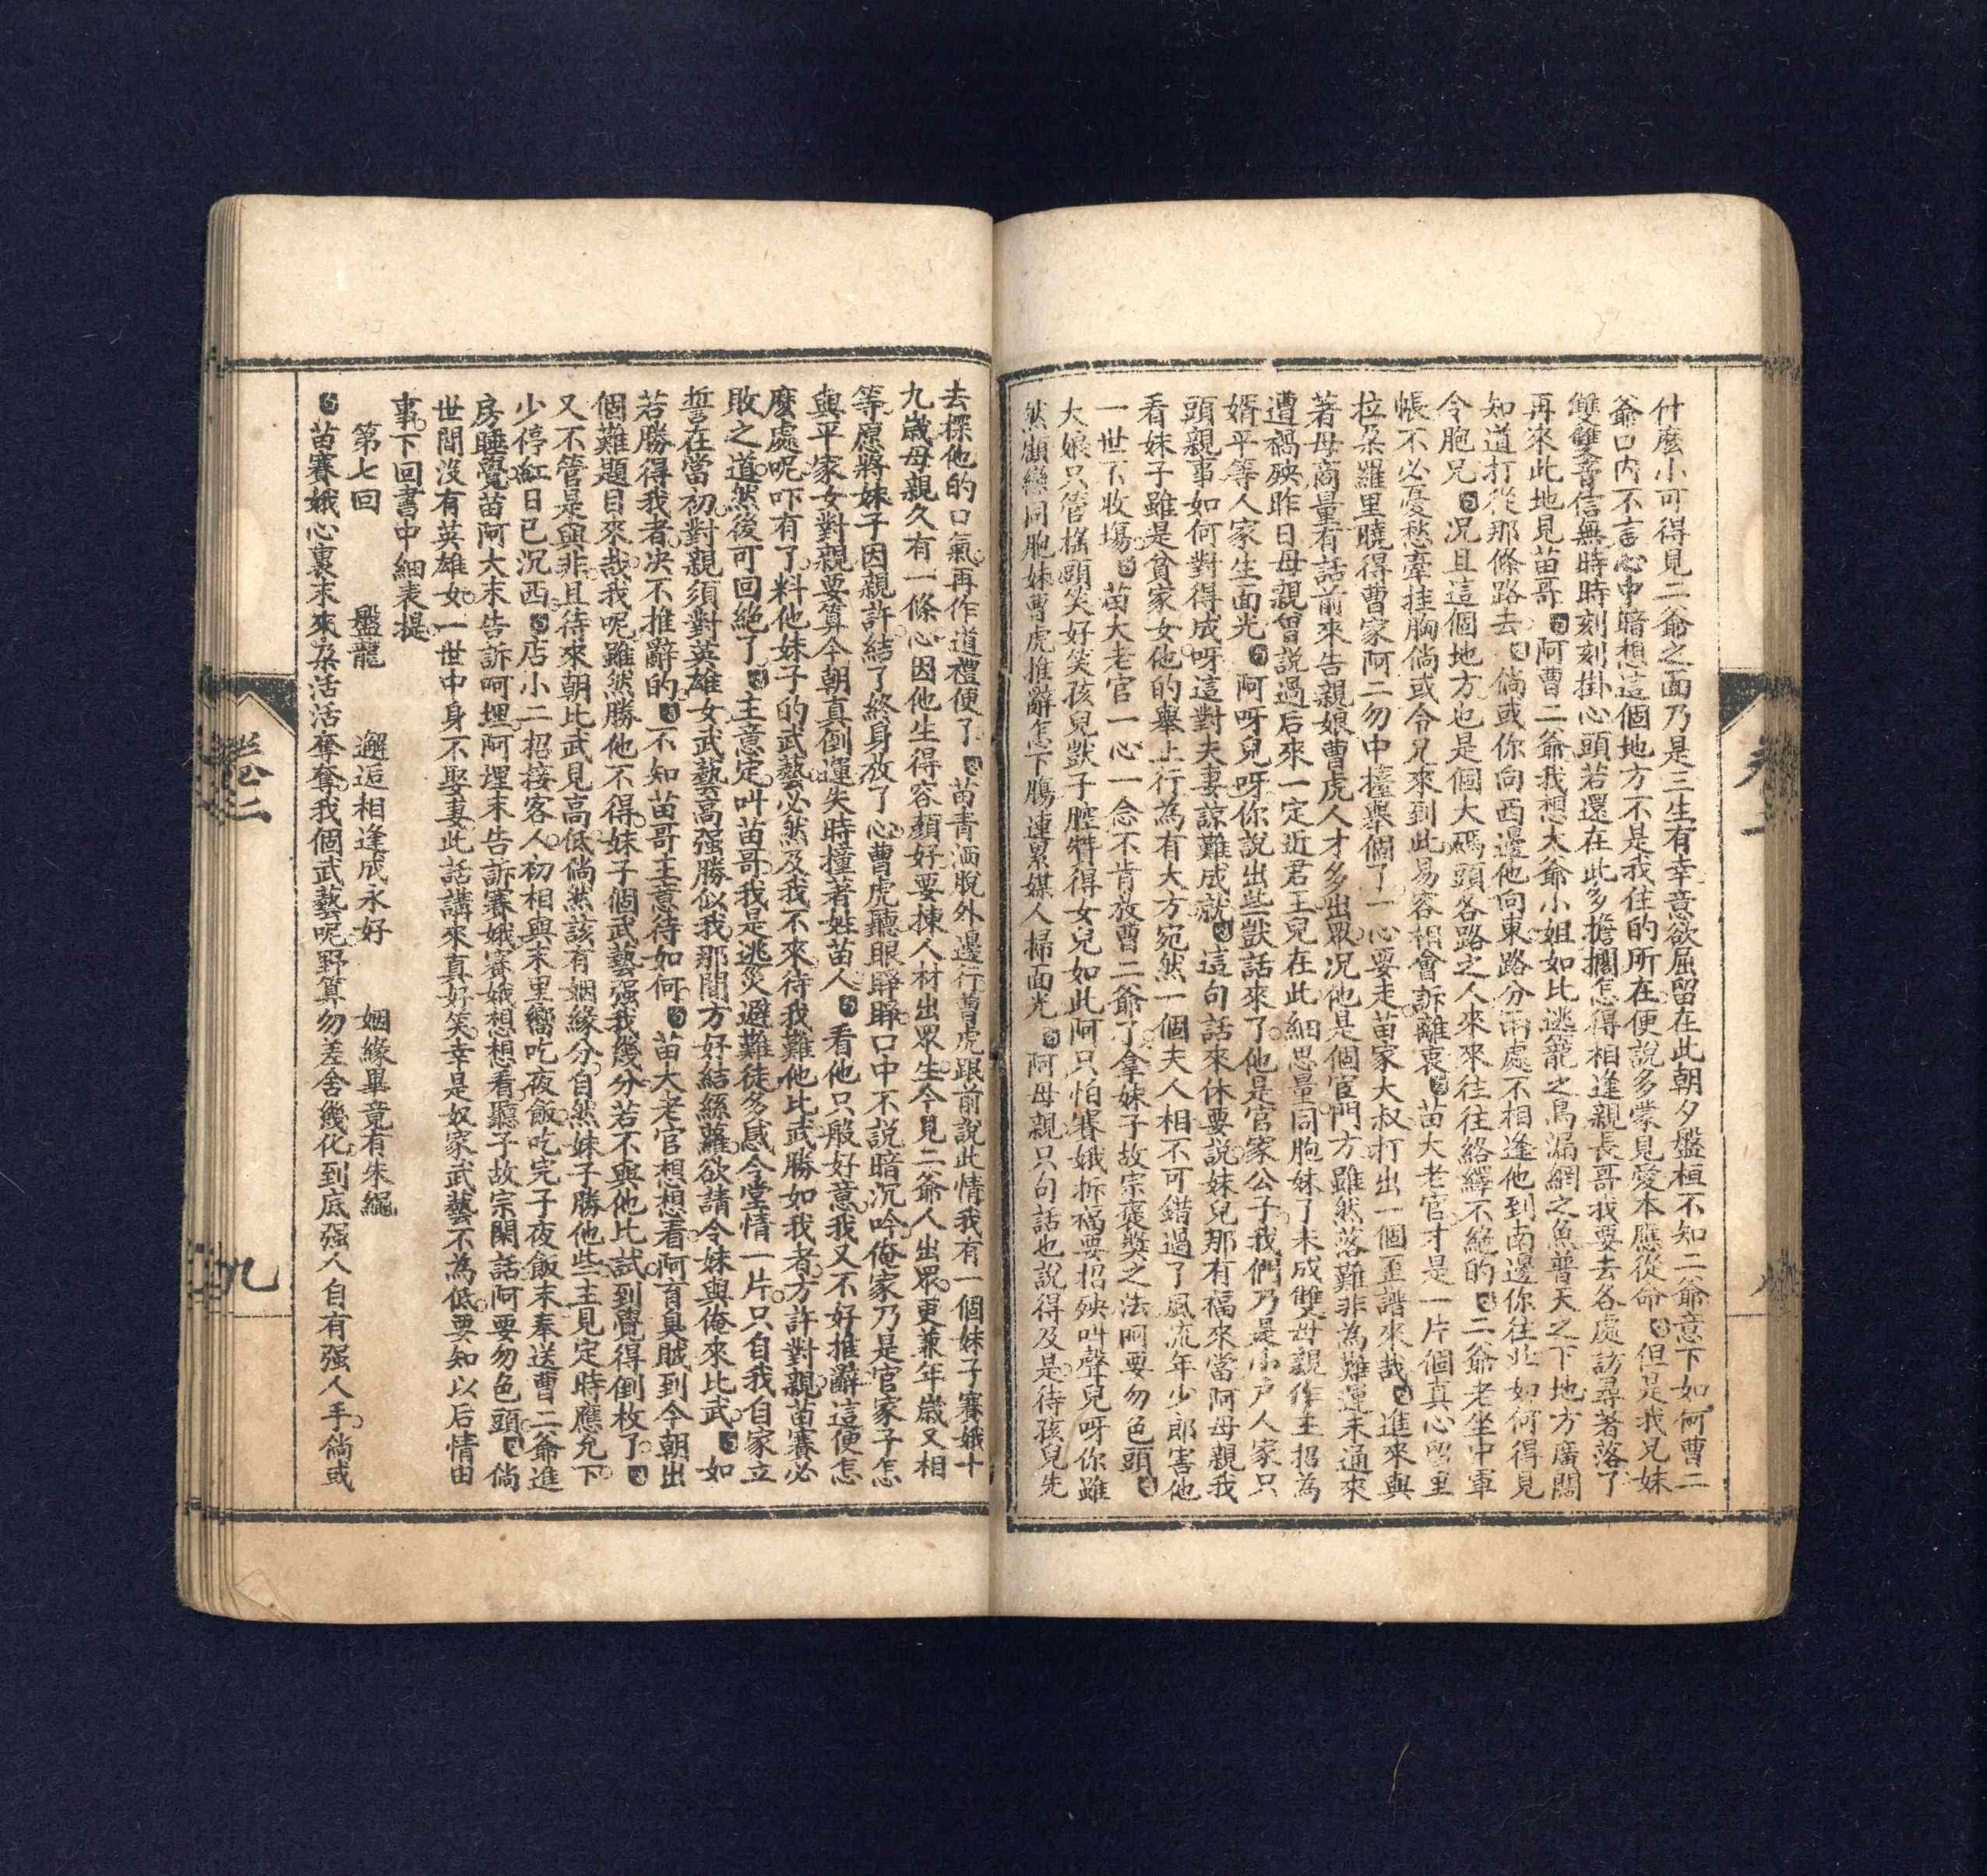 什麽小可得見二爺之面乃是三生有幸意欲屈留在此朝夕盤桓不知二爺意下如何曹二
爺口内不言心中暗想這個地方不是我住的所在便説多蒙見愛本應從命但是我兄妹
雙雙音信無時時刻刻掛心頭若還在此多擔擱怎得相逢親長哥我要去各處訪尋著落了
再來此地見苗哥阿曹二爺我想大爺小姐如比逃籠之鳥漏網之魚普天之下地方廣闊
知道打從那條路去倘或你向西邊他向東路分兩處不相逢他到南邊你往北如何得見
令胞兄况且這個地方也是個大碼頭各路之人來來往往絡繹不絶的二爺老坐中軍
帳不必憂愁牽挂胸倘或令兄來到此易容相會訴離衷苗大老官才是一片個真心留里
拉朶羅里曉得曹家阿二勿中擡舉個了一心要走苗家大叔打出一個歪譜來哉進來與
著母商量有話前來告親娘曹虎人才多出衆况他是個宦門方雖然落難非為難運未通來
遭禍殃昨日母親曾説過后來一定近君王兒在此細思量同胞妹了未成雙母親作主招為
婿平等人家生面光阿呀兒呀你説出些獃話來了他是官家公子我們乃是小户人家只
頭親事如何對得成呀這對夫妻諒難成就這句話來休要説妹兒那有福來當阿母親我
看妹子雖是貧家女他的舉止行為有大方宛然一個夫人相不可錯過了風流年少郎害他
一世下收塲苗大老官一心一念不肯放曹二爺了拿妹子故宗褒奬之法阿要勿色頭
大娘只管榣頭笑好笑孩兒獃子腔特得女兒如此阿只怕賽娥拆福要招殃叫聲兒呀你雖
然顧戀同胞妹曹虎推辭怎下腸連累媒人掃面光阿母親只句話也説得及是待孩兒先
去探他的口氣再作道禮便了苗青洒脱外邊行曹虎跟前説此情我有一個妹子賽娥十
九歲母親久有一條心因他生得容顔好要揀人材出衆生今見二爺人出衆更兼年歲又相
等愿將妹子因親許結了終身放了心曹虎聽眼睜睜口中不説暗沉吟俺家乃是官家子怎
與平家女對親要算今朝真倒運失時撞著姓苗人看他只般好意我又不好推辭這便怎
麽處呢吓有了料他妹子的武藝必然及我不來待我難他比武勝如我者方許對親苗賽必
敗之道然後可回絶了主意定叫苗哥我是逃災避難徒多感令堂情一片只自我自家立
誓在當初對親須對英雄女武藝高强勝似我那間方好結絲蘿欲請令妹與俺來比武如
若勝得我者决不推辭的不知苗哥主意待如何苗大老官想想看阿育具賊到今朝出
個難題目來哉我呢雖然勝他不得妹子個武藝强我幾分若不與他比試到覺得倒枚了
又不管是與非且待來朝比武見高低倘然該有姻緣分自然妹子勝他些主見定時應允下
少停紅日已沉西店小二招接客人初相與末里嚮吃夜飯吃完子夜飯末奉送曹二爺進
房睡覺苗阿大末告訴呵埋阿埋末告訴賽娥賽娥想想看聽子故宗閑話阿要勿色頭倘
世間没有英雄女一世中身不娶妻此話講來真好笑幸是奴家武藝不為低要知以后情由
事下回書中細表提
第七回　盤龍　邂逅相逢成永好　姻緣畢竟有朱繩
苗賽娥心裏末來朶活活奪奪我個武藝呢野算勿差舍幾化到底强人自有强人手倘或
卷二
九